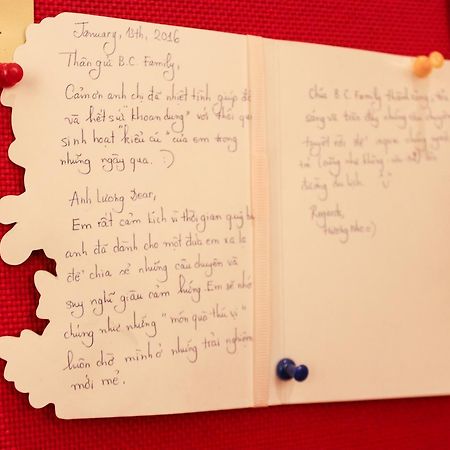 January, 13th, 2016
Thân gửi B.C. Family,
Cảm ơn anh chị đã nhiệt tình giúp đỡ
và hết sức "khoan dung" với thói quen
sinh hoạt "kiểu cú" của em trong
những ngày qua. :)
Anh Lương Dear,
Em rất cảm kích vì thời gian quý báu
anh đã dành cho một đứa em xa lạ
để chia sẻ những câu chuyện và
suy nghĩ giàu cảm hứng. Em sẽ nhớ
chúng như những "món quà thú vị"
luôn chờ mình ở những trải nghiệm
mới mẻ.
Chúc B.C. Family
sáng và tràn đầy những câu chuyện
tuyệt vời để
đường du lịch.
Regards,